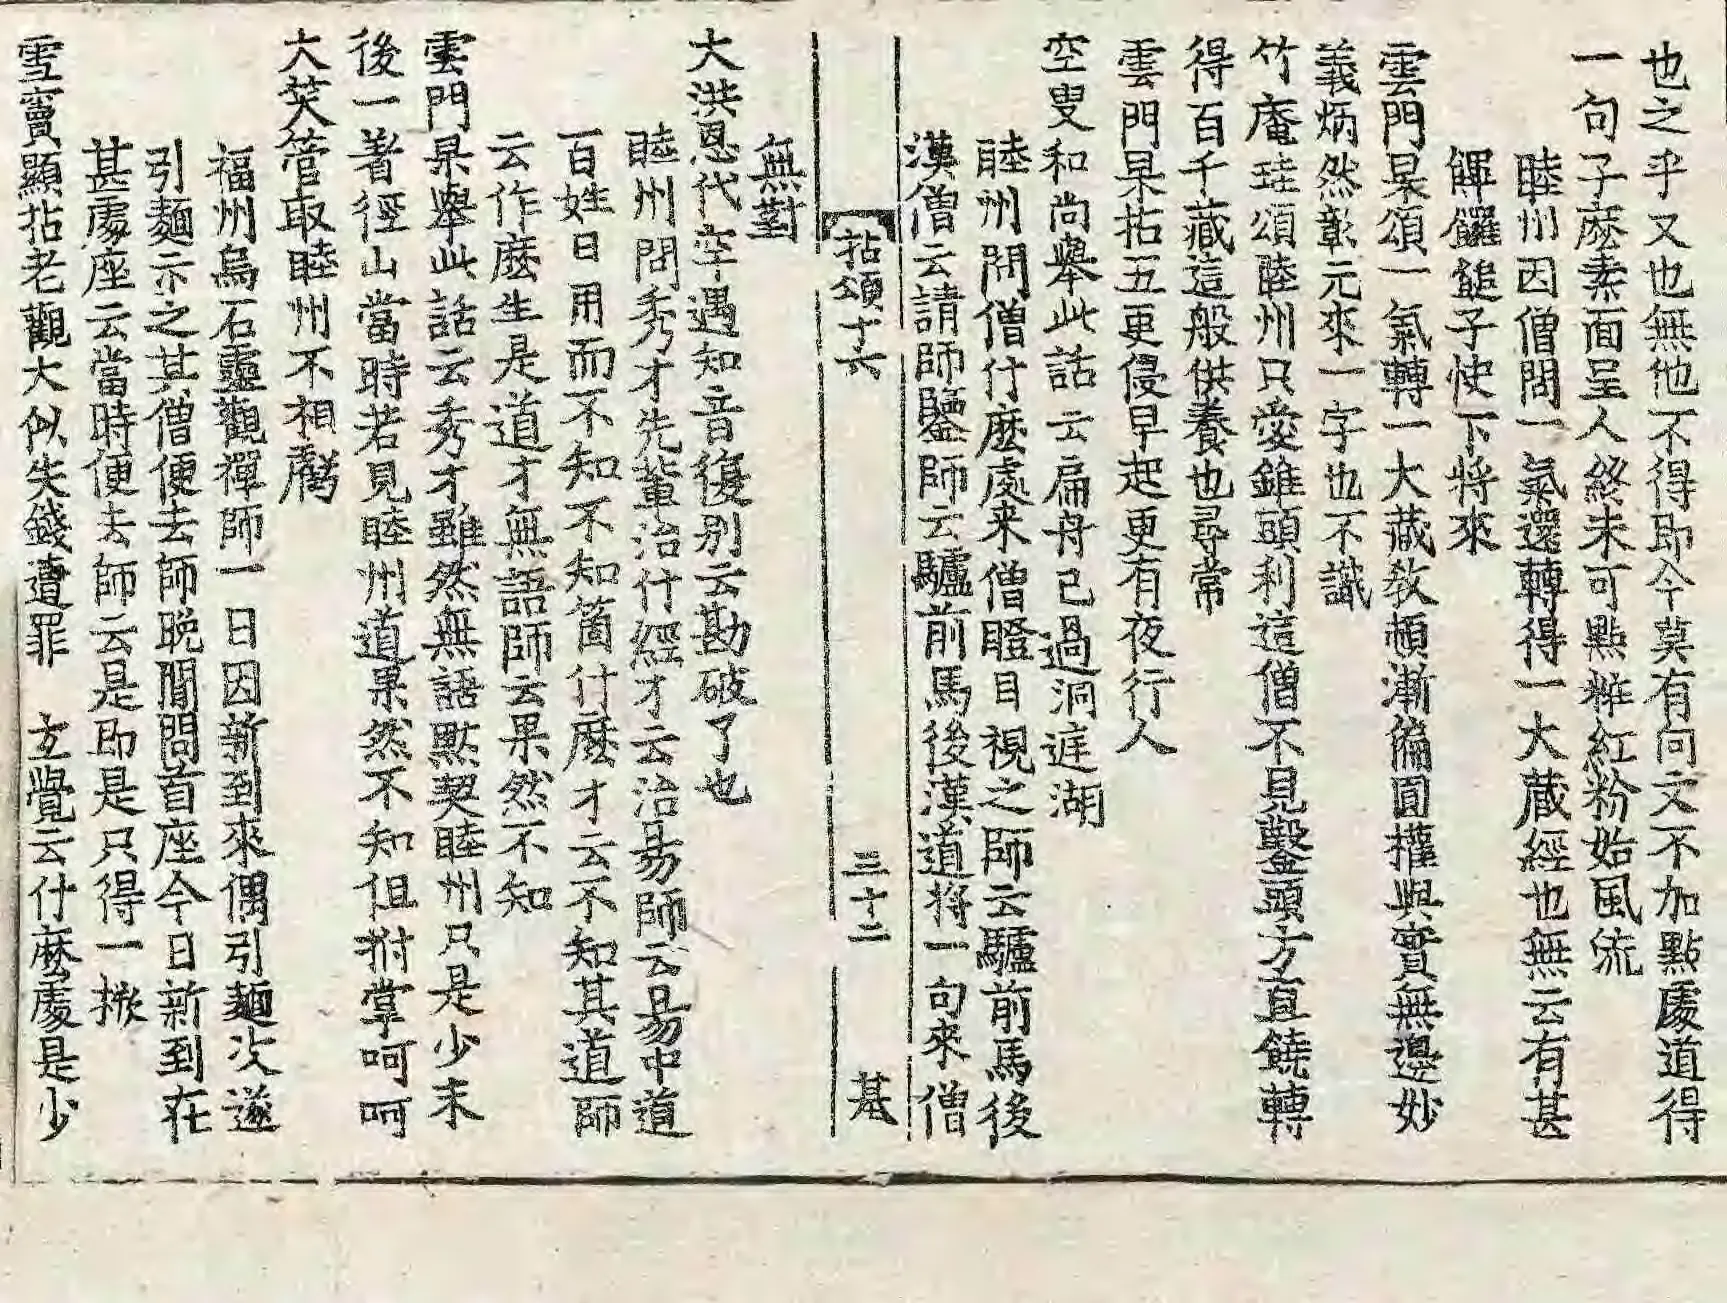 也之乎又也無他不得即今莫有向文不加點處道得
一句子麽素面呈人終未可點粧紅粉始風流
睦州因僧問一氣還轉得一大藏經也無云有甚
饆饠䭔子快下將來
雲門杲頌一氣轉一大藏教頓漸偏圓權與實無邊妙
義炳然彰元來一字也不識
竹庵珪頌睦州只愛錐頭利這僧不見鑿頭方直饒轉
得百千藏這般供養也尋常
雲門杲拈五更侵早起更有夜行人
空叟和尚舉此話云扁舟已過洞庭湖
睦州問僧什麽處来僧瞪目視之師云驢前馬後
漢僧云請師鑒師云驢前馬後漢道將一句來僧
拈頌十六 三十二 基
無對
大洪恩代空遇知音復别云勘破了也
睦州問秀才先輩治什經才云治昜師云昜中道
百姓日用而不知不知箇什麽才云不知其道師
云作麽生是道才無語師云果然不知
雲門杲舉此話云秀才雖然無語黙契睦州只是少末
後一著徑山當時若見睦州道果然不知但拊掌呵呵
大笑管取睦州不相孱
福州烏石靈觀禪師一日因新到來偶引麵次遂
引麵示之其僧便去師晚間問首座今日新到在
甚處座云當時便去師云是即是只得一橛
雪竇顯拈老觀大似失錢遭罪 玄覺云什麽處是少